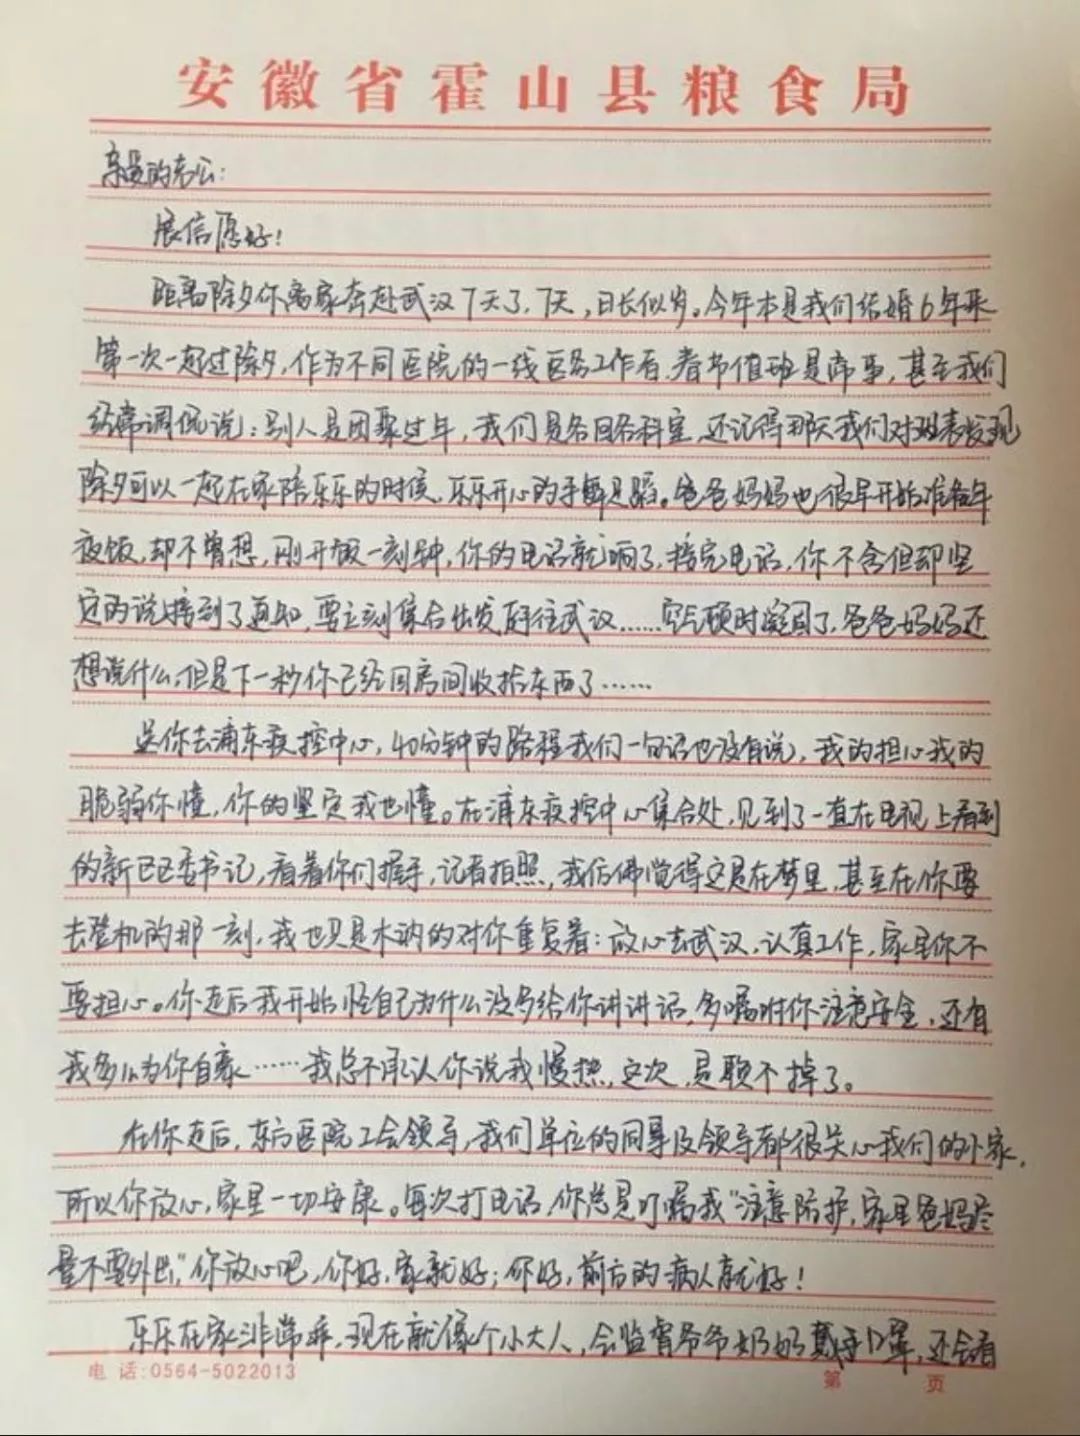 安徽省霍山县粮食局
亲爱的老公：
展信愿好！
距离除夕你离家奔赴武汉7天了，7天，日长似岁。今年本是我们结婚6年来
第一次一起过除夕，作为不同医院的一线医务工作者，春节值班是常事，甚至我们
经常调侃说：别人是团聚过年，我们是各回各科室，还记得那天我们对班表发现
除夕可以一起在家陪乐乐的时候，乐乐开心的手舞足蹈。爸爸妈妈也很早开始准备年
夜饭，却不曾想，刚开饭一刻钟，你的电话就响了，接完电话，你不舍但却坚
定的说接到了通知，要立刻集合出发前往武汉……空气顿时凝固了，爸爸妈妈还
想说什么，但是下一秒你已经回房间收拾东西了……
送你去浦东疾控中心，40分钟的路程我们一句话也没有说，我的担心我的
脆弱你懂，你的坚定我也懂。在浦东疾控中心集合处，见到了一直在电视上看到
的新区区委书记，看着你们握手，记者拍照，我仿佛觉得这是在梦里，甚至在你要
去登机的那一刻，我也只是木讷的对你重复着：放心去武汉，认真工作，家里你不
要担心。你走后我开始怪自己为什么没多给你讲讲话，多嘱咐你注意安全，还有
我多么为你自豪……我总不承认你说我慢热，这次，是赖不掉了。
在你走后，东方医院工会领导，我们单位的同事及领导都很关心我们的小家，
所以你放心，家里一切安康。每次打电话，你总是叮嘱我"注意防护，家里爸妈尽
量不要外出，"你放心吧，你好，家就好；你好，前方的病人就好！
乐乐在家非常乖，现在就像个小大人，会监督爷爷奶奶戴手口罩，还会看
电 话：0564-5022013
第 页